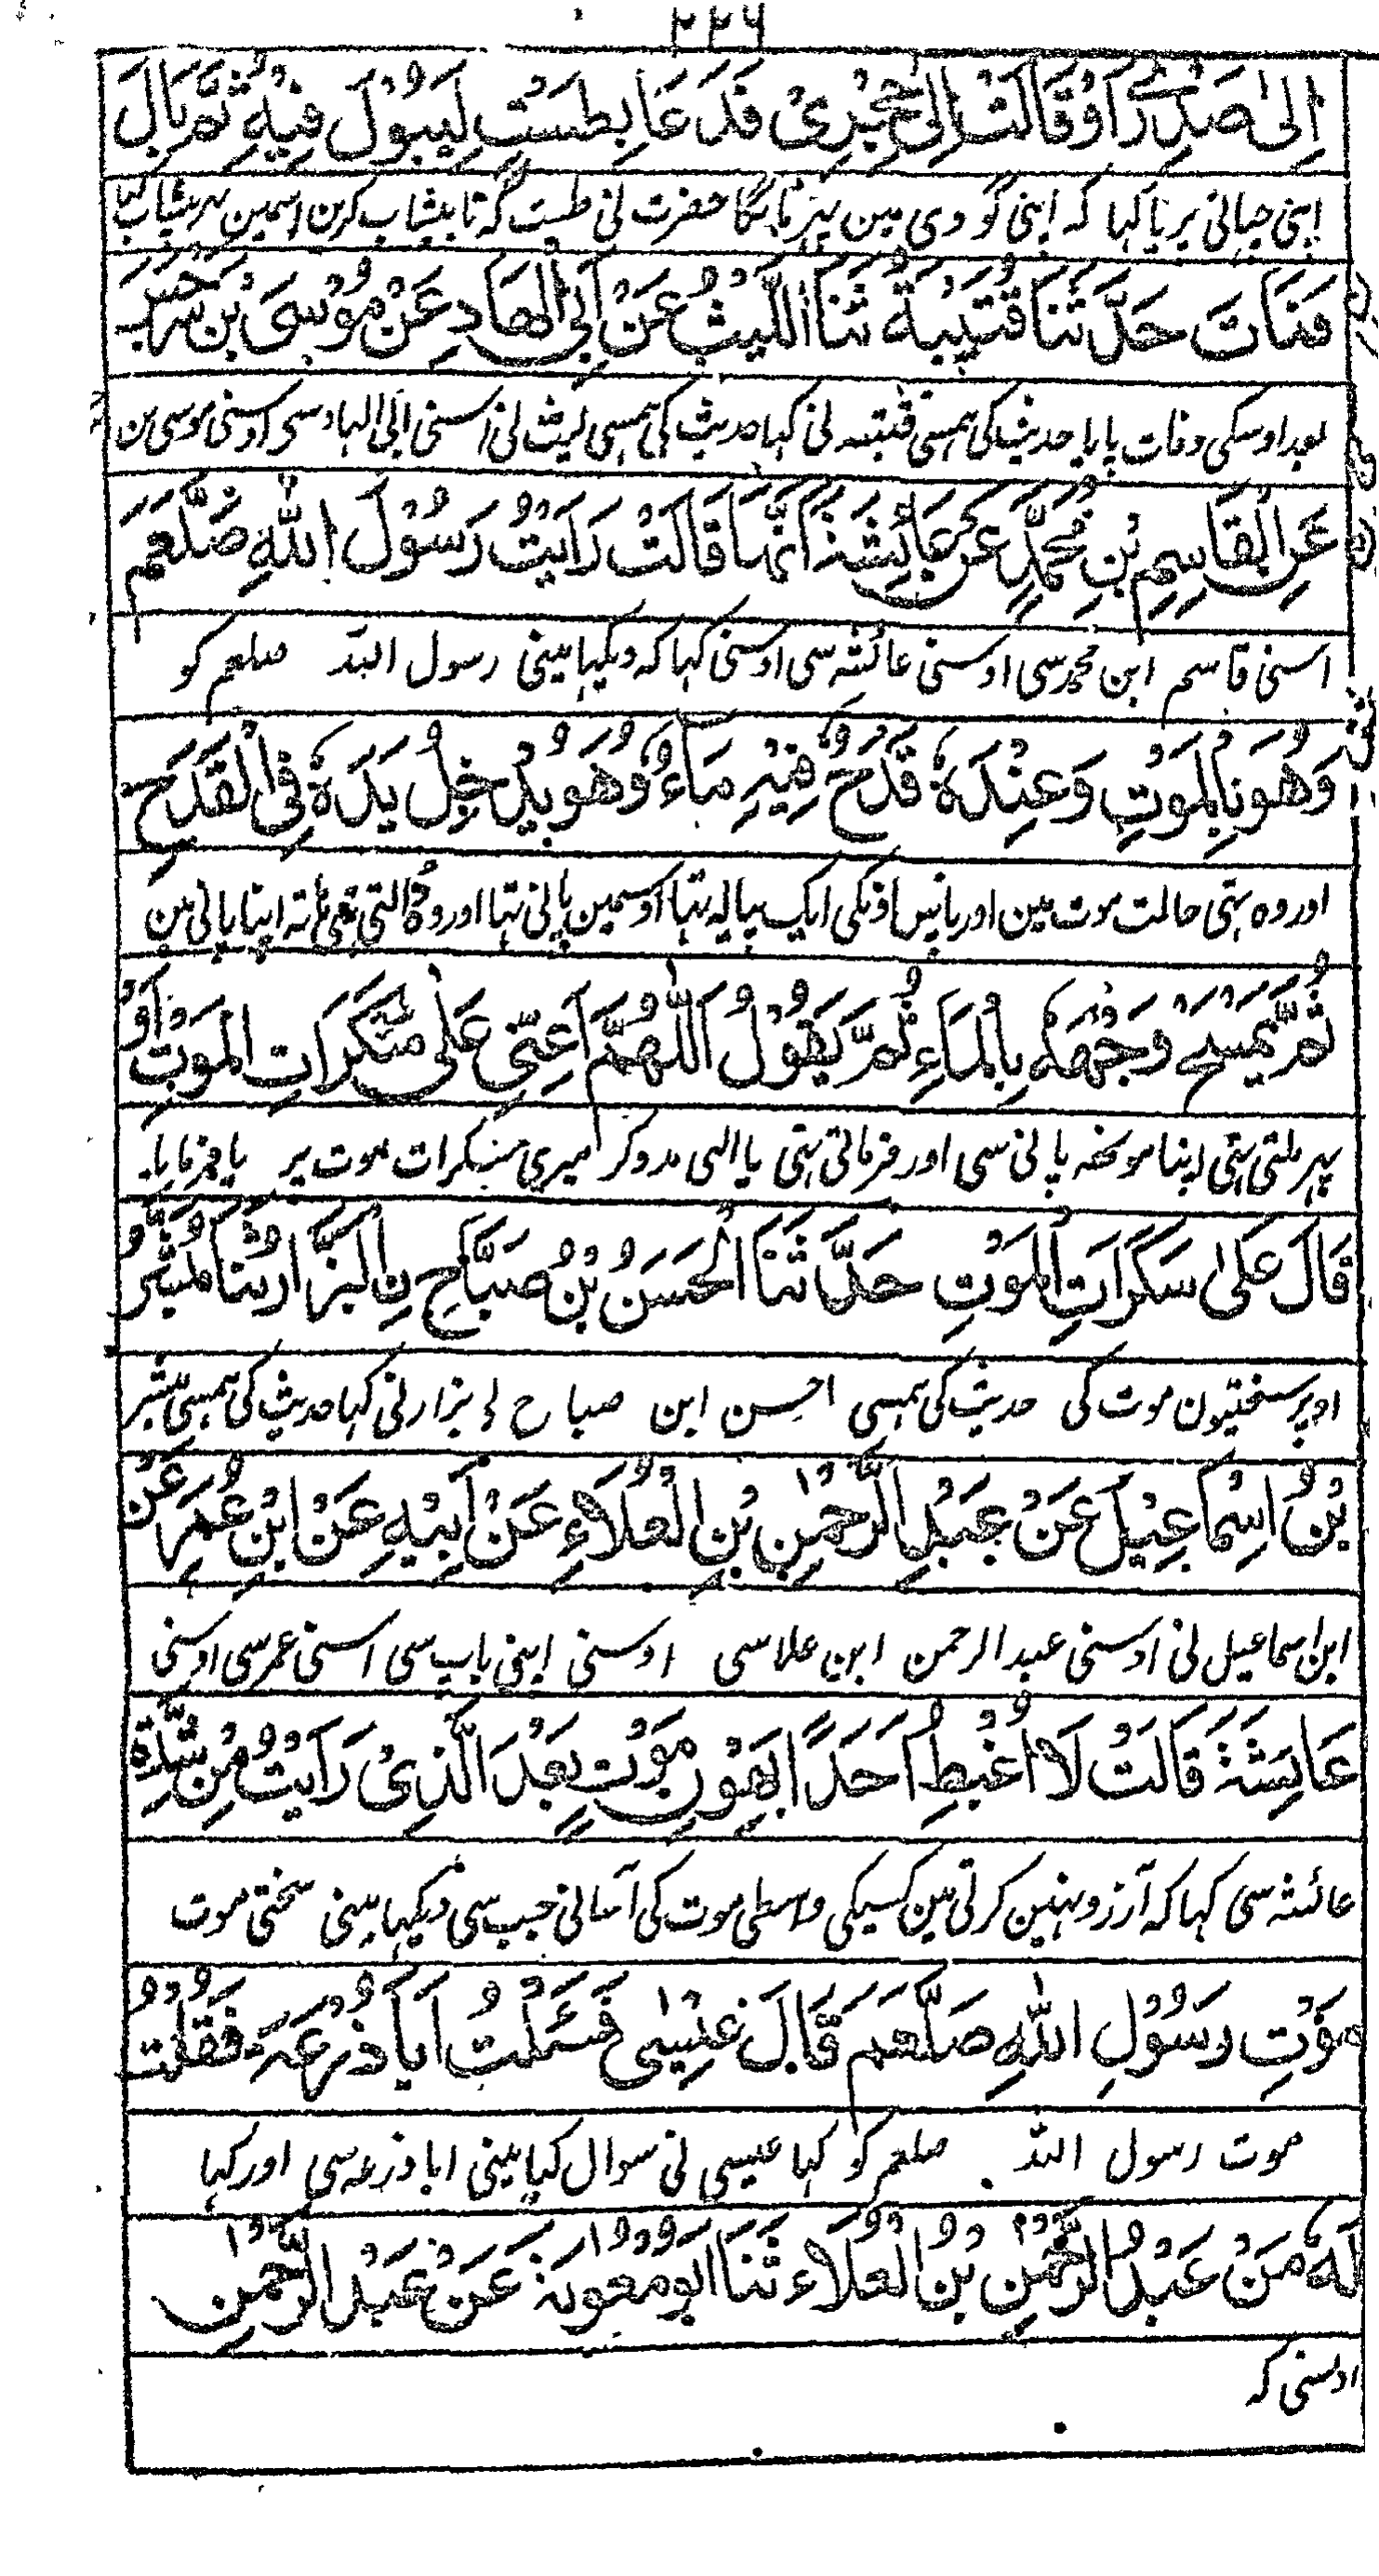 ٢٢٦
اِلٰى صَدْرِيْ اَوْ قَالَتْ اِلٰى حِجْرِىْ فَدَعَا بِطَسْتٍ لِيَبُوْلَ فِيْهِ ثُمَّ بَالَ
اپنی چہاتی پر یا کہا کہ اپنی گودی مین پہر مانگا حضرت نی طست کہ تا پیشاب کرین اسمین پہر پیشاب کیا
فَمَاتَ حَدَّثَنَا قُتَيْبَةُ ثَنَا اللَّيْثُ عَنْ اَبِى الْهَادِ عَنْ مُوْسٰى بْنِ سَرْجِسَ
بعد اوسکی وفات پایا حدیث کی ہمسی قتیبہ نی کہا حدیث کی ہمسی لیث نی اسنی ابی الہاد سی اوسنی موسی بن
عَنِ الْقَاسِمِ بْنِ مُحَمَّدٍ عَنْ عَائِشَةَ اَنَّهَا قَالَتْ رَاَيْتُ رَسُوْلَ اللّٰهِ صَلَّعَمَ
اسنی قاسم ابن محمد سی اوسنی عائشہ سی اوسنی کہا کہ دیکہا مینی رسول اللہ صلعم کو
وَهُوَ بِالْمَوْتِ وَعِنْدَهٗ قَدَحٌ فِيْهِ مَاءٌ وَهُوَ يُدْخِلُ يَدَهٗ فِى الْقَدَحِ
اور وہ تہی حالت موت مین اور پاس اونکی ایک پیالہ تہا اوسمین پانی تہا اور وہ ڈالتی تہی ہاتہ اپنا پانی مین
ثُمَّ يَمْسَحُ وَجْهَهٗ بِالْمَاءِ ثُمَّ يَقُوْلُ اَللّٰهُمَّ اَعِنِّى عَلٰى مُنْكَرَاتِ الْمَوْتِ اَوْ
پہر ملتی تہی اپنا مونہہ پانی سی اور فرماتی تہی یا الہی مدد کر میری منکرات موت پر یا فرمایا
قَالَ عَلٰى سَكَرَاتِ الْمَوْتِ حَدَّثَنَا الْحَسَنُ بْنُ صَبَّاحٍ نِ الْبَزَّارُ ثَنَا مُبَشِّرُ
اوپر سختیون موت کی حدیث کی ہمسی احسن ابن صباح بزار نی کہا حدیث کی ہمسی مبشر
بْنُ اِسْمَاعِيْلَ عَنْ عَبْدِ الرَّحْمٰنِ بْنِ الْعُلَاءِ عَنْ اَبِيْهِ عَنْ ابْنِ عُمَرَ عَنْ
ابن اسماعیل نی اوسنی عبد الرحمن ابن علا سی اوسنی اپنی باپ سی اسنی عمر سی اوسنی
عَايِشَةَ قَالَتْ لَا اَغْبِطُ اَحَدًا بِهَوْنِ مَوْتٍ بَعْدَ الَّذِىْ رَاَيْتُ مِنْ شِدَّةِ
عائشہ سی کہا کہ آرزو نہین کرتی مین کسیکی واسطی موت کی آسانی جب سی دیکہا مینی سختی موت
مَوْتِ رَسُوْلِ اللّٰهِ صَلَّعَمَ قَالَ عِيْسٰى فَسَئَلْتُ اَبَا ذُرْعَةَ فَقُلْتُ
موت رسول اللہ صلعم کو کہا عیسی نی سوال کیا مینی ابا ذرعہ سی اور کہا
لَهٗ مَنْ عَبْدُ الرَّحْمٰنِ بْنُ الْعُلَاءِ ثَنَا اَبُو مُعٰوِيَةَ عَنْ عَبْدِ الرَّحْمٰنِ
اوسنی کہ